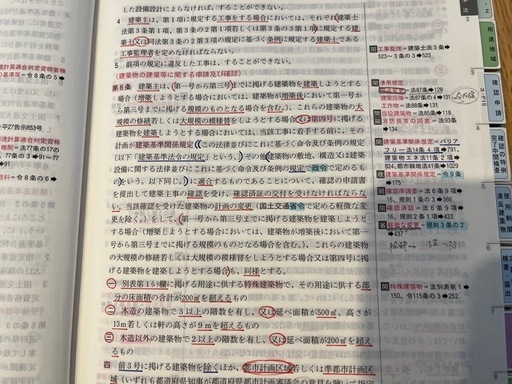 した設備設計によらなければ、することができない。
4 建築主は、第1項に規定する工事をする場合においては、それぞれ建築士
法第3条第1項、第3条の2第1項若しくは第3条の3第1項に規定する建
築士又は同法第3条の2第3項の規定に基づく条例に規定する建築士である
工事監理者を定めなければならない。
5 前項の規定に違反した工事は、することができない。
(建築物の建築等に関する申請及び確認)
第6条 建築主は、第一号から第三号までに掲げる建築物を建築しようとする
場合(増築しようとする場合においては、建築物が増築後において第一号か
ら第三号までに掲げる規模のものとなる場合を含む。)、これらの建築物の大
規模の修繕若しくは大規模の模様替をしようとする場合又は第四号に掲げ
る建築物を建築しようとする場合においては、当該工事に着手する前に、その
計画が建築基準関係規定(この法律並びにこれに基づく命令及び条例の規定
(以下「建築基準法令の規定」という。)その他建築物の敷地、構造又は建築
設備に関する法律並びにこれに基づく命令及び条例の規定で政令で定めるも
のをいう。以下同じ。)に適合するものであることについて、確認の申請書
を提出して建築主事の確認を受け、確認済証の交付を受けなければならな
い。当該確認を受けた建築物の計画の変更(国土交通省令で定める軽微な変
更を除く。)をして、第一号から第三号までに掲げる建築物を建築しようとす
る場合(増築しようとする場合においては、建築物が増築後において第一号
から第三号までに掲げる規模のものとなる場合を含む。)、これらの建築物
の大規模の修繕若しくは大規模の模様替をしようとする場合又は第四号に掲
げる建築物を建築しようとする場合も、同様とする。
一 別表第1(い)欄に掲げる用途に供する特殊建築物で、その用途に供する部
分の床面積の合計が200㎡を超えるもの
二 木造の建築物で3以上の階数を有し、又は延べ面積が500㎡、高さが
13m若しくは軒の高さが9mを超えるもの
三 木造以外の建築物で2以上の階数を有し、又は延べ面積が200㎡を超え
るもの
四 前3号に掲げる建築物を除くほか、都市計画区域若しくは準都市計画区
域(いずれも都道府県知事が都道府県都市計画審議会の意見を聴いて指定
関 工事監理=建築士法3条➡
523~3条の3➡523
法87条➡128
建築設備=法87条の4➡131
工作物=法88条➡131
仮設建築物=法85条➡118
消防長等の同意=法93条
➡134
建築基準関係規定=バリア
フリー法14条4項➡911
建築物エネ法11条2項➡
924、都市緑地法41条➡881
政 建築基準関係規定=令9条
➡175
確認申請書=法6条9項➡
16、規則1条の3➡366
確認済証=法6条4項➡
16、規則2条1項➡433
軽微な変更=規則3条の2
➡437
関 特殊建築物=法別表第1➡
150、令115条の3➡252
平27告示853号。
用途地域
確認申請